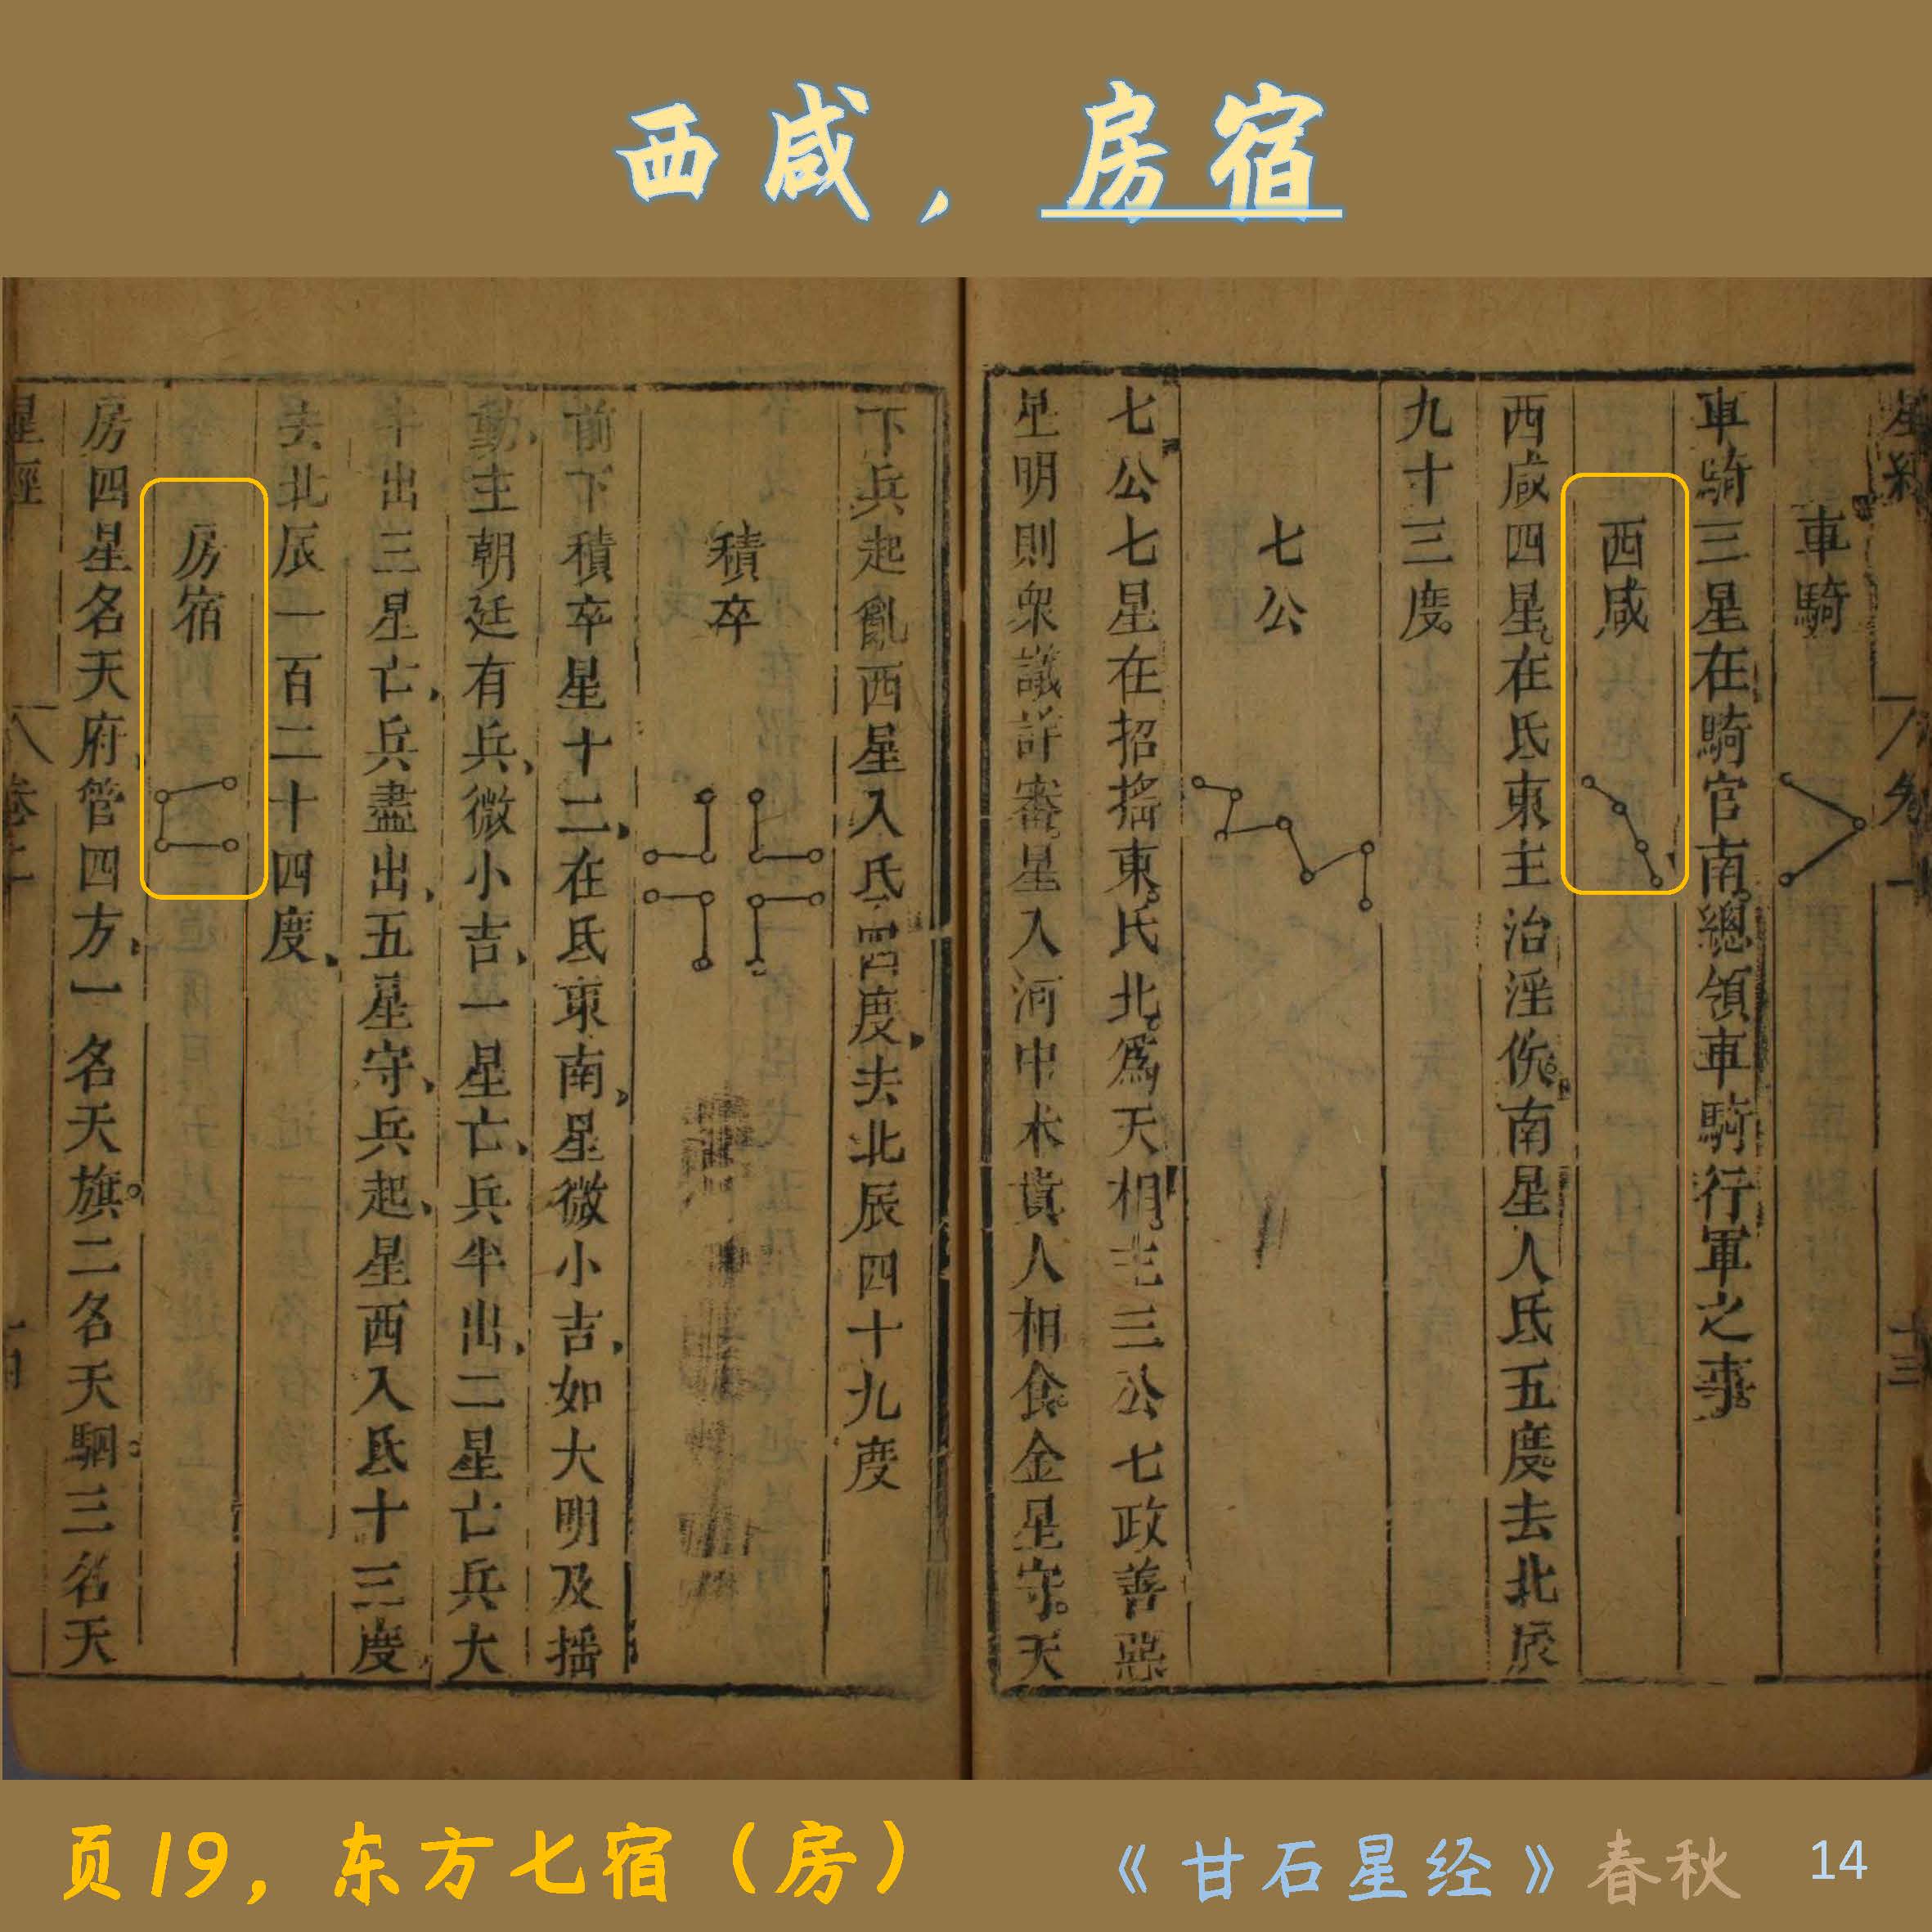 西咸，房宿
車騎
車騎三星在騎官南總領車騎行軍之事
西咸
西咸四星在氐東主治淫佚南星入氐五度去北辰
九十三度
七公
七公七星在招摇東氐北為天相主三公七政善惡
星明則衆議詳審星入河中米貴人相食金星守天
下兵起亂西星入氐四度去北辰四十九度
積卒
前下積卒星十二在氐東南星微小吉如大明及摇
動主朝廷有兵微小吉一星亡兵半出二星亡兵大
半出三星亡兵盡出五星守兵起星西入氐十三度
去北辰一百二十四度
房宿
房四星名天府管四方一名天旗二名天駟三名天
页19，东方七宿（房）
《甘石星经》春秋 14